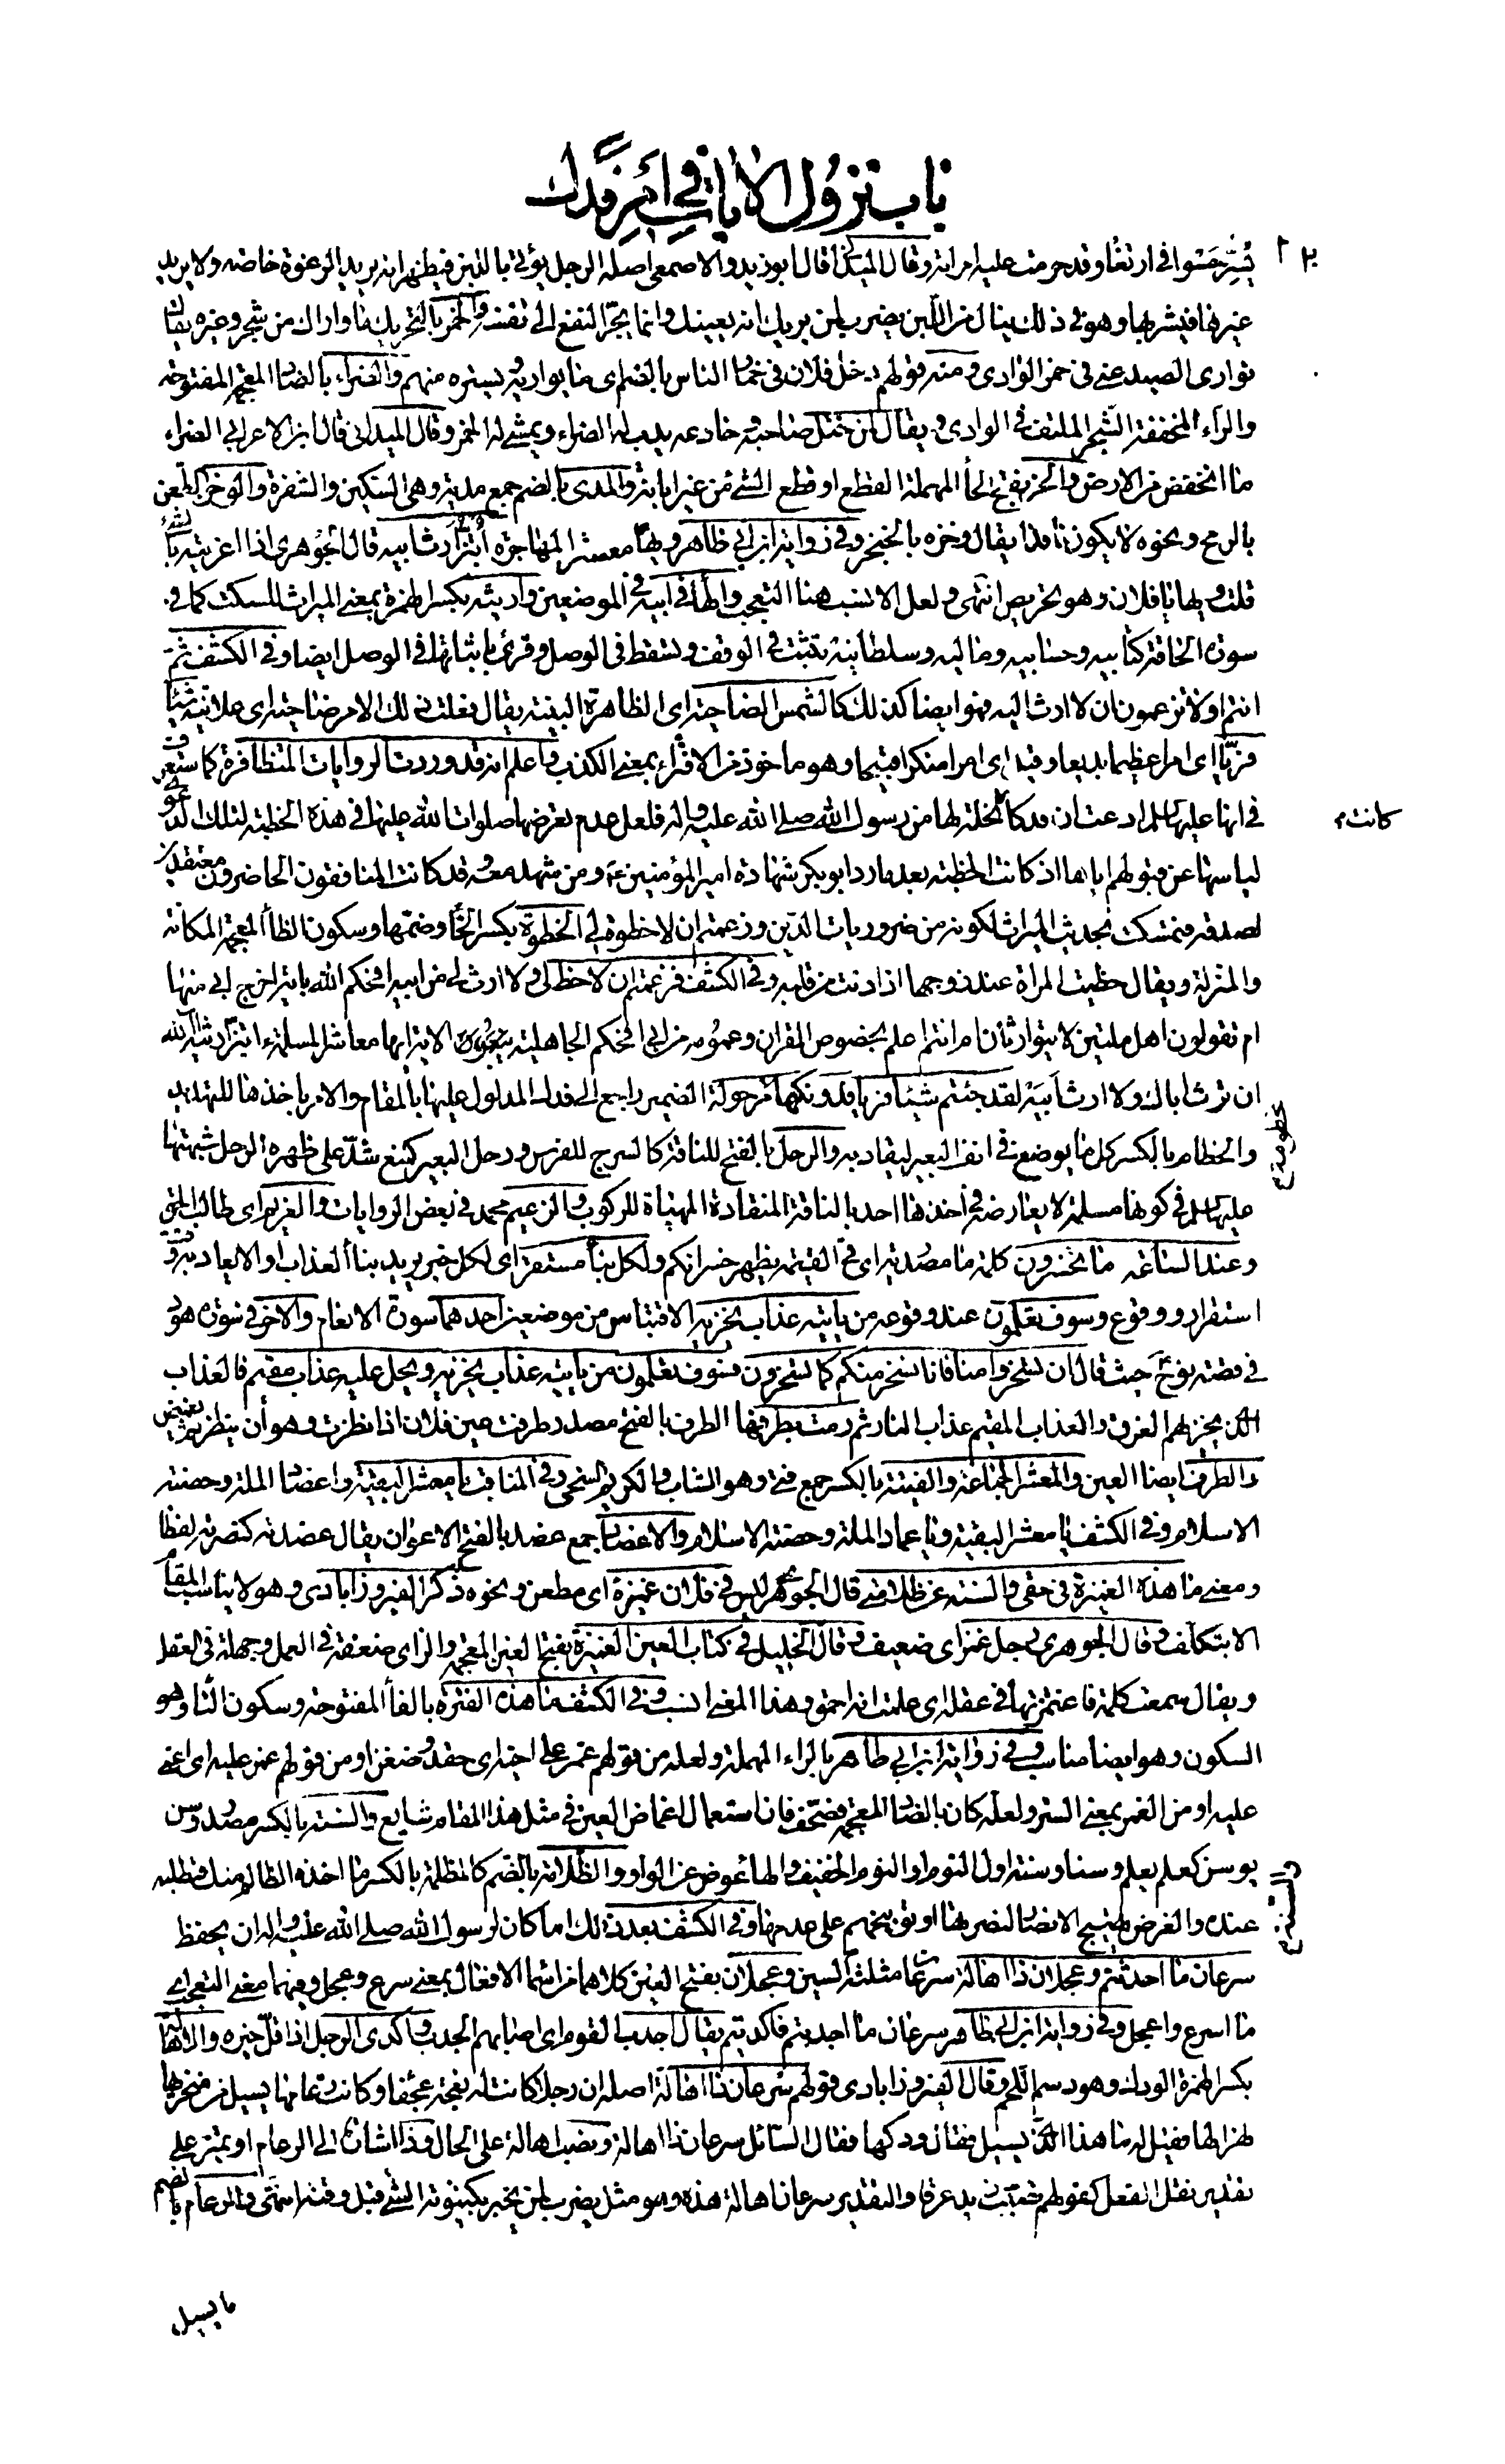 باب نزول الآيات في أمر فدك
يسر حسوا في ارتغاء وقد حرمت عليه امرأته وقال الميداني قال ابو زيد والاصمعي اصله الرجل يؤتى باللبن فيظهر انه يريد الرغوة خاصة ولا يريد
غيرها فيشربها وهو في ذلك ينال من اللبن يضرب لمن يريك انه يعينك وانما يجر النفع الى نفسه والخمر بالتحريك ما واراك من شجر وغيره يقال
توارى الصيد عني في خمر الوادي ومنه قولهم دخل فلان في خمار الناس بالضم اي ما يواريه ويستره منهم والضراء بالضاد المعجمة المفتوحة
والراء المخففة الشجر الملتف في الوادي ويقال لمن ختل صاحبه وخادعه يدب له الضراء ويمشي له الخمر وقال الميداني قال ابن الاعرابي الضراء
ما انخفض من الارض والحز بفتح الحاء المهملة القطع او قطع الشئ من غير ابانة والمدى بالضم جمع مدية وهي السكين والشفرة والوخز الطعن
بالرمح ونحوه لا يكون نافذا يقال وخزه بالخنجر وفي رواية ابن ابي طاهر ويها معشر المهاجرة أبتز ارث ابيه قال الجوهري اذا اغريته بالشئ
قلت ويها يا فلان وهو تحريص انتهى ولعل الانسب هنا التعجب والهاء في ابيه في الموضعين وارثيه بكسر الهمزة بمعنى الميراث للسكت كما في
سورة الحاقة كتابيه وحسابيه وماليه وسلطانيه تثبت في الوقف وتسقط في الوصل وقرئ باثباتها في الوصل ايضا وفي الكشف ثم
انتم اولا تزعمون ان لا ارث ابيه فهو ايضا كذلك كالشمس الضاحية اي الظاهرة البينة يقال فعلت ذلك الامر ضاحية اي علانية شيئا
فريا اي امرا عظيما بديعا وقيل اي امرا منكرا قبيحا وهو ماخوذ من الافتراء بمعنى الكذب واعلم انه قد وردت الروايات المتظافرة كما ستعرف
في انها عليها السلم ادعت ان فدكا كانت نحلة لها من رسول الله صلى الله عليه وآله فلعل عدم تعرضها صلوات الله عليها في هذه الخطبة لتلك الدعوى
لياسها عن قبولهم اياها اذ كانت الخطبة بعد ما رد ابو بكر شهادة امير المؤمنين ع ومن شهد معه وقد كانت المنافقون الحاضرون معتقدين
لصدقه فتمسكت بحديث الميراث لكونه من ضروريات الدين وزعمتم ان لا حظوة لي الحظوة بكسر الحاء وضمها وسكون الظاء المعجمة المكانة
والمنزلة ويقال حظيت المرأة عند زوجها اذا دنت من قلبه وفي الكشف فزعمتم ان لا حظ لي ولا ارث لي من ابيه افحكم الله بآية اخرج ابي منها
ام تقولون اهل ملتين لا يتوارثان ام انتم اعلم بخصوص القرآن وعمومه من ابي افحكم الجاهلية تبغون الآية ايها معاشر المسلمة ءابتز ارثيه الله
ان ترث اباك ولا ارث ابيه لقد جئتم شيئا فريا فدونكها مرحولة الضمير راجع الى فدك المدلول عليها بالمقام والامر باخذها للتهديد
والخطام بالكسر كل ما يوضع في انف البعير ليقاد به والرحل بالفتح للناقة كالسرج للفرس ورحل البعير كمنع شد على ظهره الرحل شبهتها
عليها السلم في كونها مسلمة لا يعارضه في اخذها احد بالناقة المنقادة المهياة للركوب والزعيم محمد في بعض الروايات والغريم اي طالب الحق
وعند الساعة ما تخسرون كلمة ما مصدرية اي في القيمة يظهر خسرانكم ولكل نبأ مستقر اي لكل خبر يريد نبأ العذاب او الايعاد به وقت
استقرار ووقوع وسوف تعلمون عند وقوعه من يأتيه عذاب يخزيه الاقتباس من موضعين احدهما سورة الانعام والآخر في سورة هود
في قصة نوح ع حيث قال ان تسخروا منا فانا نسخر منكم كما تسخرون فسوف تعلمون من يأتيه عذاب يخزيه ويحل عليه عذاب مقيم فالعذاب
الذي يخزيهم الغرق والعذاب المقيم عذاب النار ثم رمت بطرفها الطرف بالفتح مصدر طرفت عين فلان اذا نظرت وهو أن ينظر ثم يغمض
والطرف ايضا العين والمعشر الجماعة والفتية بالكسر جمع فتى وهو الشاب والكريم السخي وفي المناقب يا معشر البقية واعضاد الملة وحضنة
الاسلام وفي الكشف يا معشر البقية ويا عماد الملة وحضنة الاسلام والاعضاد جمع عضد بالفتح الاعوان يقال عضدته كنصرته لفظا
ومعنى ما هذه الغميزة في حقي والسنة عن ظلامتي قال الجوهري ليس في فلان غميزة اي مطعن ونحوه ذكر الفيروزآبادي وهو لا يناسب المقام
الا بتكلف وقال الجوهري رجل غمز اي ضعيف وقال الخليل في كتاب العين الغميزة بفتح الغين المعجمة والزاي ضعفة في العمل وجهلة في العقل
ويقال سمعت كلمة فاغتمزتها في عقله اي علمت انه احمق وهذا المعنى انسب وفي الكشف ما هذه الفترة بالفاء المفتوحة وسكون التاء وهو
السكون وهو ايضا مناسب وفي رواية ابن ابي طاهر بالراء المهملة ولعله من قولهم غمر على اخيه اي حقد وضغن او من قولهم غمر عليه اي اغمي
عليه او من الغمر بمعنى الستر ولعله كان بالضاد المعجمة فصحف فان استعمال اغماض العين في مثل هذا المقام شايع والسنة بالكسر مصدر وسن
يوسن كعلم يعلم وسنا وسنة اول النوم او النوم الخفيف والهاء عوض عن الواو والظلامة بالضم كالمظلمة بالكسر ما اخذه الظالم منك فتطلبه
عنده والغرض تهييج الانصار لنصرتها او توبيخهم على عدمها وفي الكشف بعد ذلك اما كان لرسول الله صلى الله عليه وآله ان يحفظ
سرعان ما احدثتم وعجلان ذا اهالة سرعان مثلثة السين وعجلان بفتح العين كلاهما من اسماء الافعال بمعنى سرع وعجل وفيهما معنى التعجب اي
ما اسرع واعجل وفي رواية ابن ابي طاهر سرعان ما اجدبتم فاكديتم يقال اجدب القوم اي اصابهم الجدب واكدى الرجل اذا قل خيره والاهالة
بكسر الهمزة الودك وهو دسم اللحم وقال الفيروزآبادي قولهم سرعان ذا اهالة اصله ان رجلا كانت له نعجة عجفاء وكانت رعامها يسيل من منخريها
لهزالها فقيل له ما هذا الذي يسيل فقال ودكها فقال السائل سرعان ذا اهالة ونصب اهالة على الحال وذا اشارة الى الرعام او تميز على
تقدير نقل الفعل كقولهم تصبب زيد عرقا والتقدير سرعان اهالة هذه وهو مثل يضرب لمن يخبر بكينونة الشئ قبل وقته انتهى والرعام بالضم
ما يسيل